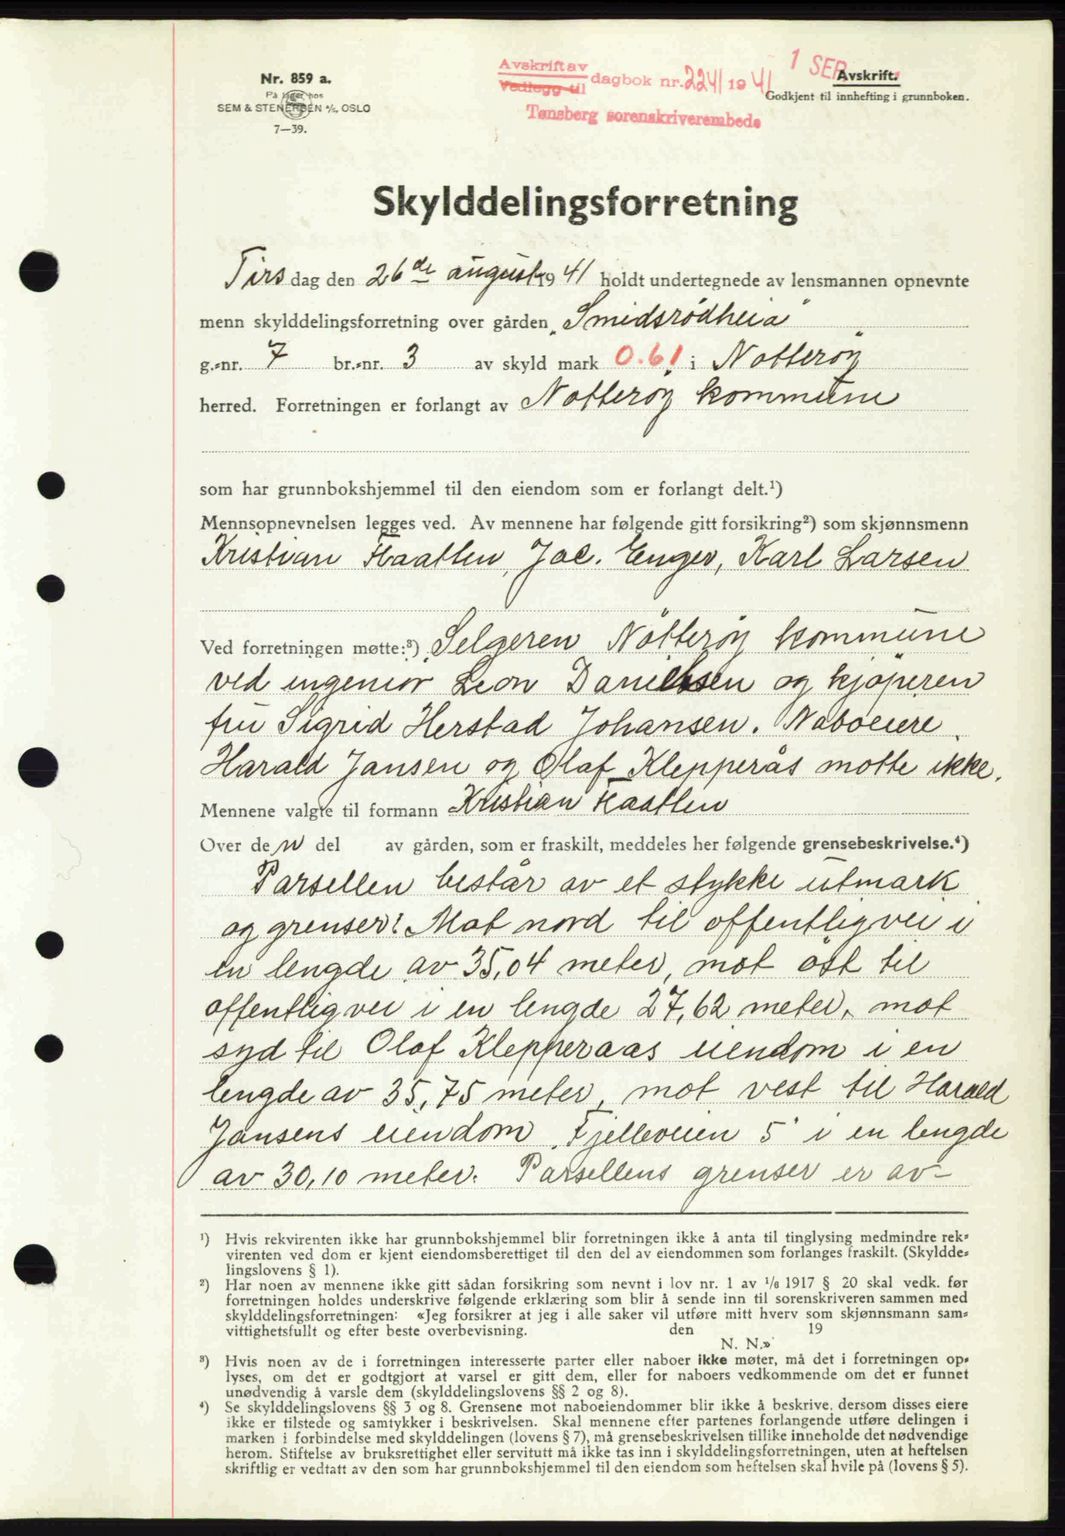 Nr. 859 a.
På lager hos
SEM & STENERSEN A/S, OSLO
7—39.
Avskrift av
Vedlegg til dagbok nr. 2241 1941
Tønsberg sorenskriverembede
1 SEP.
Avskrift.
Godkjent til innhefting i grunnboken.
Skylddelingsforretning
Tirsdag den 26de august 1941 holdt undertegnede av lensmannen opnevnte
menn skylddelingsforretning over gården „Smidsrødheia"
g.-nr. 7 br.-nr. 3 av skyld mark 0.61 i Nøtterøy
herred. Forretningen er forlangt av Nøtterøy kommune
som har grunnbokshjemmel til den eiendom som er forlangt delt.¹)
Mennsopnevnelsen legges ved. Av mennene har følgende gitt forsikring²) som skjønnsmenn
Kristian Haatlen, Jac. Enger, Karl Larsen
Ved forretningen møtte:³) Selgeren Nøtterøy kommune
ved ingeniør Leon Danielsen og kjøperen
fru Sigrid Herstad Johansen. Naboeiere
Harald Jansen og Olaf Klepperås møtte ikke.
Mennene valgte til formann Kristian Haatlen
Over den del av gården, som er fraskilt, meddeles her følgende grensebeskrivelse.⁴)
Parsellen består av et stykke utmark
og grenser: Mot nord til offentlig vei i
en lengde av 35,04 meter, mot øst til
offentlig vei i en lengde 27,62 meter, mot
syd til Olaf Klepperaas eiendom i en
lengde av 35,75 meter, mot vest til Harald
Jansens eiendom „Fjelleveien 5" i en lengde
av 30,10 meter. Parsellens grenser er av-
¹) Hvis rekvirenten ikke har grunnbokshjemmel blir forretningen ikke å anta til tinglysing medmindre rek-
virenten ved dom er kjent eiendomsberettiget til den del av eiendommen som forlanges fraskilt. (Skyldde-
lingslovens § 1).
²) Har noen av mennene ikke gitt sådan forsikring som nevnt i lov nr. 1 av 1/6 1917 § 20 skal vedk. før
forretningen holdes underskrive følgende erklæring som blir å sende inn til sorenskriveren sammen med
skylddelingsforretningen: «Jeg forsikrer at jeg i alle saker vil utføre mitt hverv som skjønnsmann sam-
vittighetsfullt og efter beste overbevisning. den 19
N. N.»
³) Hvis noen av de i forretningen interesserte parter eller naboer ikke møter, må det i forretningen op-
lyses, om det er godtgjort at varsel er gitt dem, eller for naboers vedkommende om det er funnet
unødvendig å varsle dem (skylddelingslovens §§ 2 og 8).
⁴) Se skylddelingslovens §§ 3 og 8. Grensene mot naboeiendommer blir ikke å beskrive, dersom disses eiere
ikke er tilstede og samtykker i beskrivelsen. Skal mennene efter partenes forlangende utføre delingen i
marken i forbindelse med skylddelingen (lovens § 7), må grensebeskrivelsen tillike inneholde det nødvendige
herom. Stiftelse av bruksrettighet eller servitutt må ikke tas inn i skylddelingsforretningen, uten at heftelsen
skriftlig er vedtatt av den som har grunnbokshjemmel til den eiendom som heftelsen skal hvile på (lovens § 5).